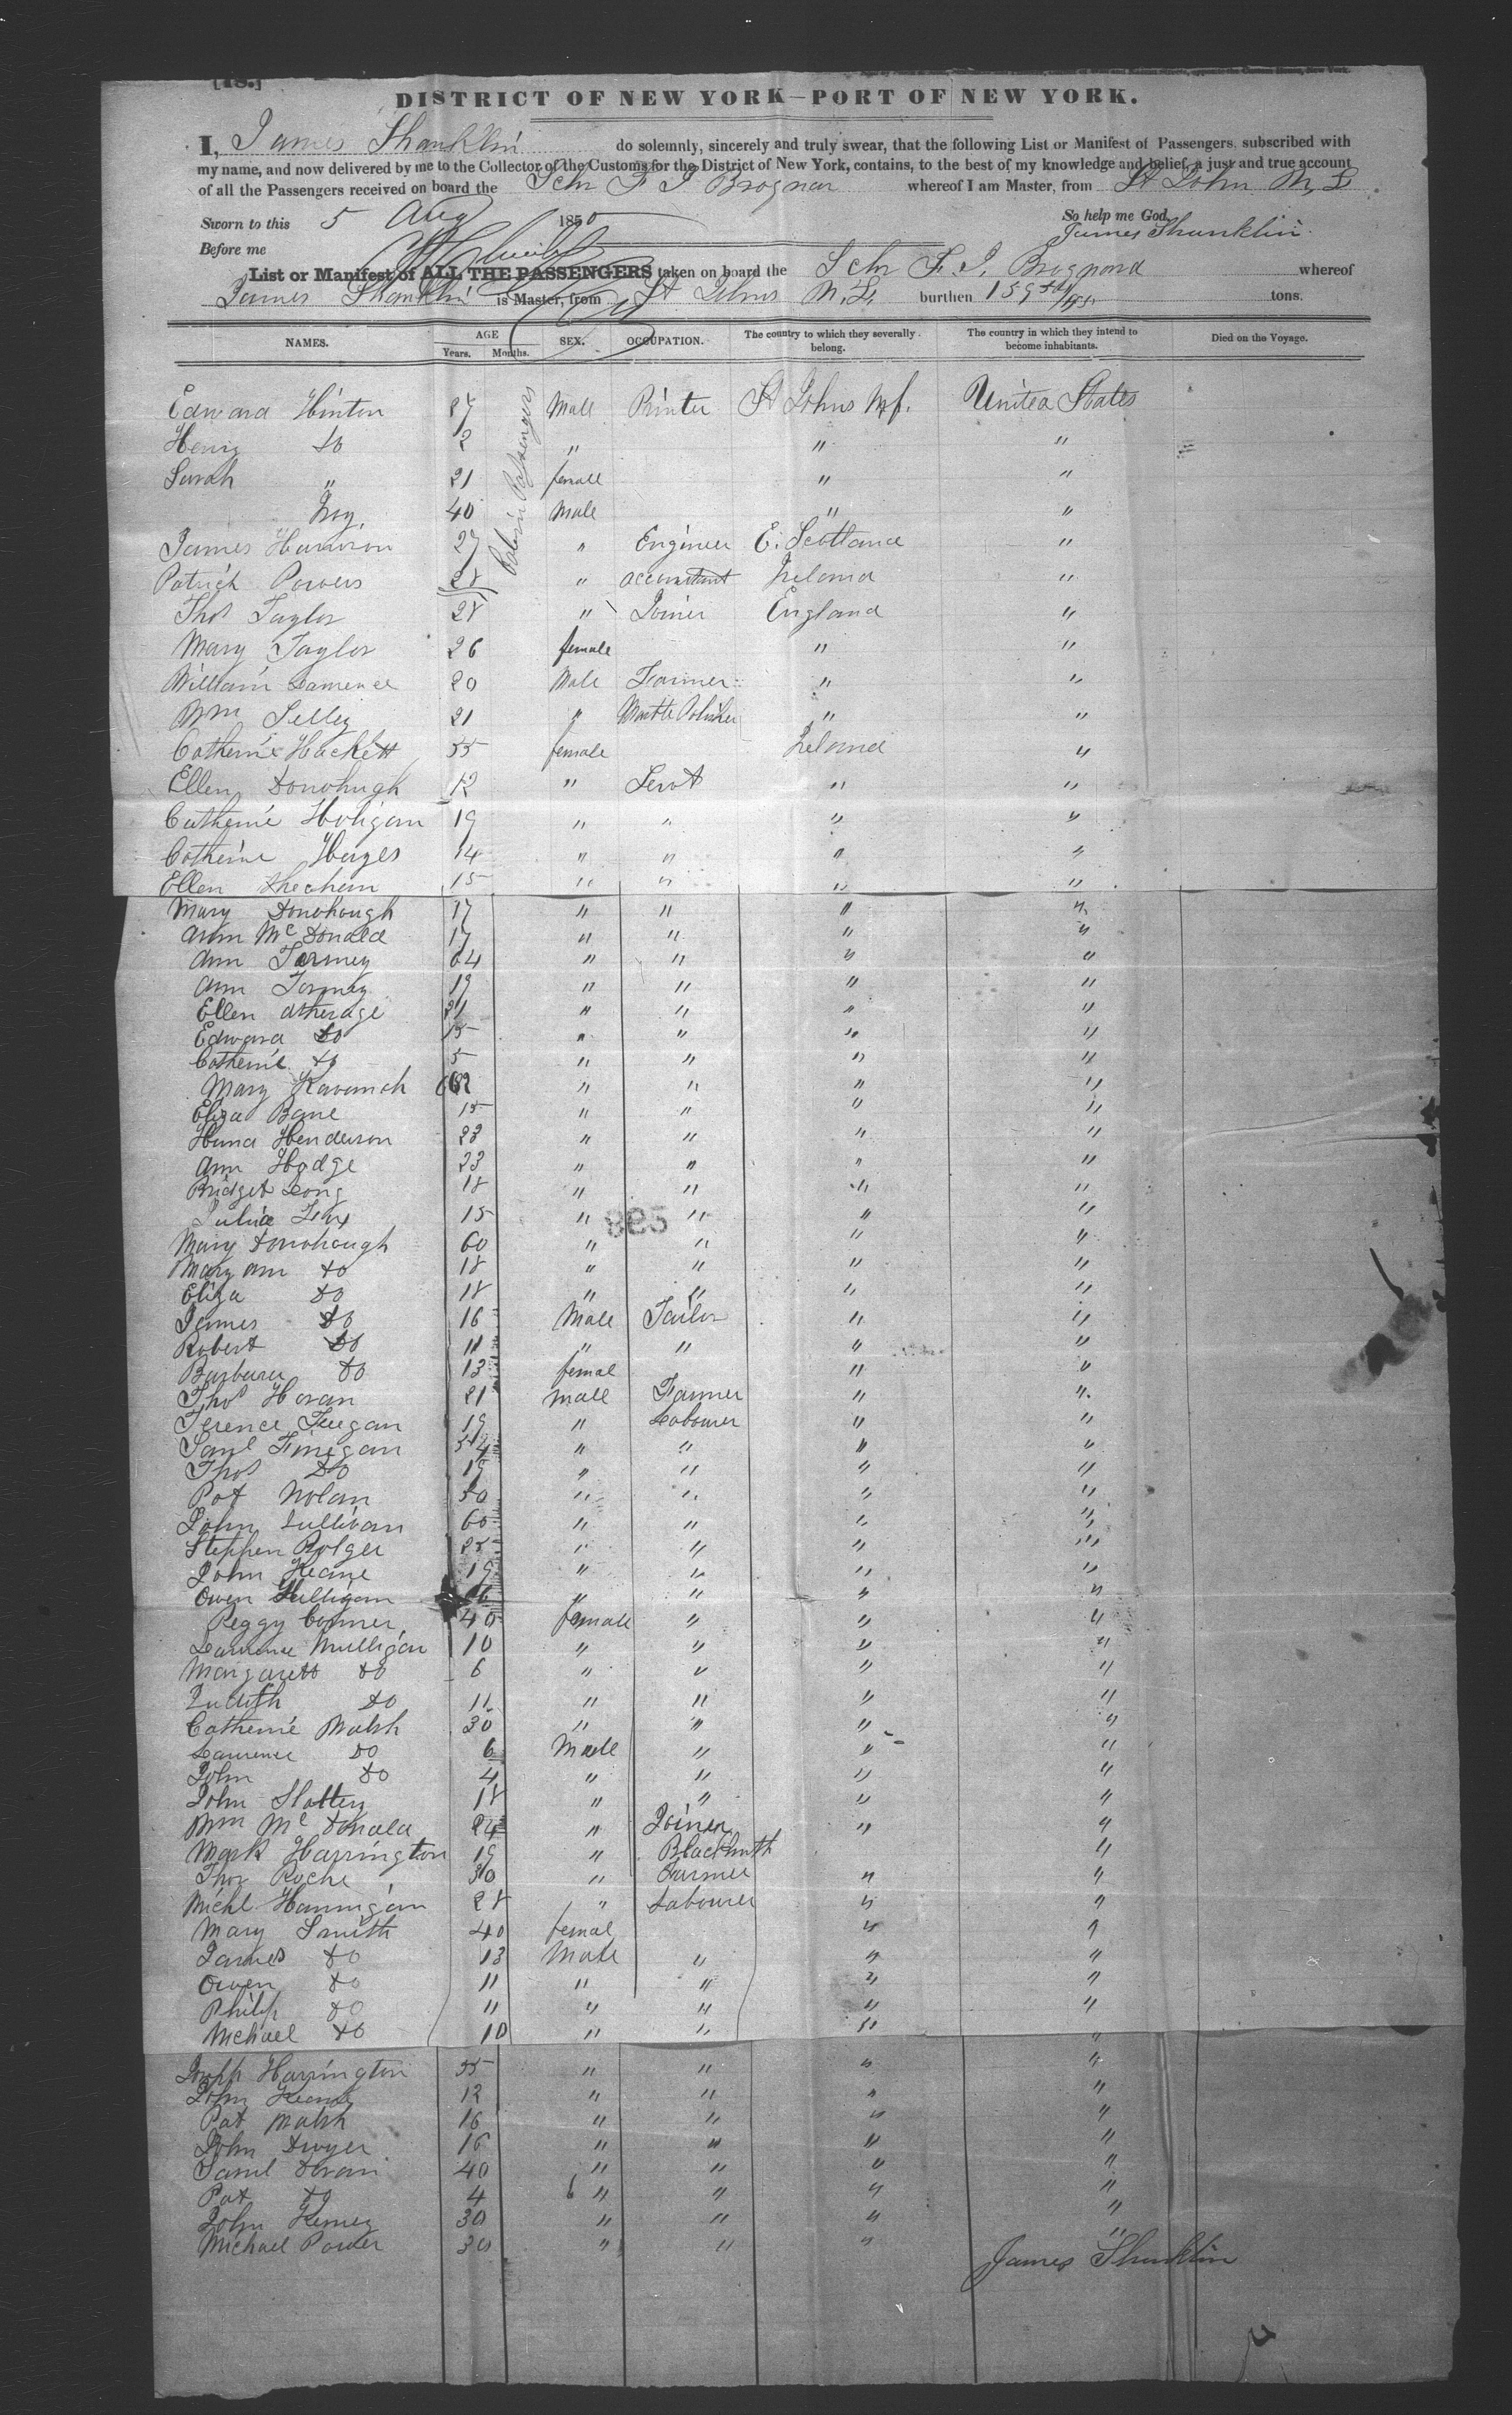 [18.]
DISTRICT OF NEW YORK—PORT OF NEW YORK.
I, James Shanklin do solemnly, sincerely and truly swear, that the following List or Manifest of Passengers, subscribed with
my name, and now delivered by me to the Collector of the Customs for the District of New York, contains, to the best of my knowledge and belief, a just and true account
of all the Passengers received on board the Schr F J Brognar whereof I am Master, from St John N, F
Sworn to this 5 Aug 1850 So help me God,
James Shanklin
Before me
List or Manifest of ALL THE PASSENGERS taken on board the Schr F. J. Brognard whereof
James Shanklin is Master, from St Johns N. F. burthen 159 tons.
NAMES. AGE Years. Months. SEX. OCCUPATION. The country to which they severally belong. The country in which they intend to become inhabitants. Died on the Voyage.
Cabin Passengers
Edward Hinton 27 Male Printer St Johns Nf. United States
Henry Do 2 " " "
Sarah " 21 female " "
40 Male " "
James 27 " Engineer E. Scotland "
Patrick Powers 28 " accountant Ireland "
Thos Taylor 28 " Joiner England "
Mary Taylor 26 female " "
William Lawrence 20 Male Farmer " "
Wm 21 " Marble Polisher " "
Catherine Hackett 55 female Ireland "
Ellen Donohugh 12 " Servt " "
Catherine Holigan 19 " " " "
Catherine Hayes 14 " " " "
Ellen 15 " " " "
Mary Donohough 17 " " " "
Ann McDonald 17 " " " "
Ann 64 " " " "
Ann 19 " " " "
Ellen Atherage 21 " " " "
Edward Do 15 " " " "
Catherine Do 5 " " " "
Mary Kavanah " " " "
Eliza Bane 15 " " " "
Hana Henderson 23 " " " "
Ann Hodge 23 " " " "
Bridget Long 18 " " " "
Julia Fox 15 " " " "
895
Mary Donohough 60 " " " "
Mary Ann Do 18 " " " "
Eliza Do 18 " " " "
James Do 16 Male Tailor " "
Robert Do 11 " " " "
Barbara Do 13 femal " "
Thos Horan 21 male Farmer " "
Terence Feegan 19 " Labourer " "
Saml Finegan 54 " " " "
Thos Do 19 " " " "
Pat Nolan 50 " " " "
John Sullivan 60 " " " "
Stephen Bolger 25 " " " "
John Keane 19 " " " "
Owen " " " "
Peggy Conner 40 female " " "
Laurence Mulligan 10 " " " "
Margarett Do 6 " " " "
Judith Do 11 " " " "
Catherine Walsh 30 " " " "
Laurence Do 6 Male " " "
John Do 4 " " " "
John Slattery 18 " " " "
Wm McDonald 24 " Joiner " "
Mark Harrington 19 " Blacksmith "
Thos Roche 30 " Farmer " "
Michl Hannigan 28 " Labourer " "
Mary Smith 40 femal " "
James Do 13 Male " " "
Owen Do 11 " " " "
Philip Do " " " " "
Michael Do 10 " " " "
Joseph Harrington 55 " " " "
John Keane 12 " " " "
Pat Walsh 16 " " " "
John Dwyer 16 " " " "
Saml Doran 40 " " " "
Pat Do 4 " " " "
John 30 " " " "
Michael Power 30 " " " "
James Shanklin